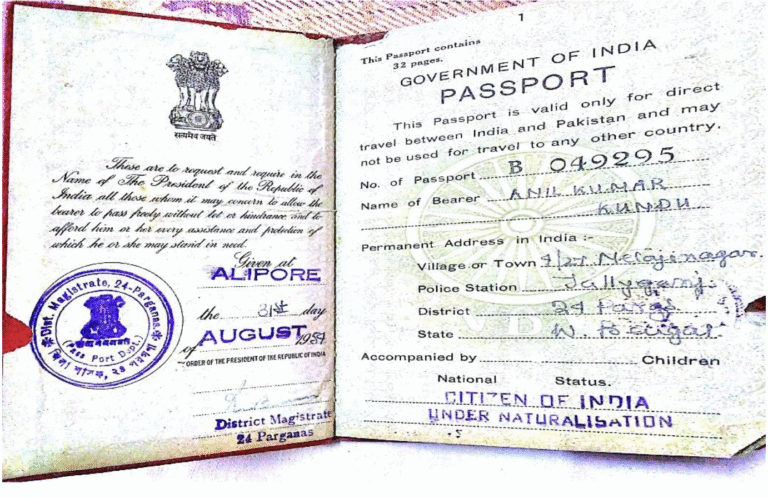 सत्यमेव जयते
These are to request and require in the
Name of The President of the Republic of
India all those whom it may concern to allow the
bearer to pass freely without let or hindrance and to
afford him or her every assistance and protection of
which he or she may stand in need.
Given at
ALIPORE
the 31st day
of AUGUST 195
ORDER OF THE PRESIDENT OF THE REPUBLIC OF INDIA
District Magistrate
24 Parganas
Dist. Magistrate, 24-Parganas.
सत्यमेव जयते
(Pass Port Dept.)
1
This Passport contains
32 pages.
GOVERNMENT OF INDIA
PASSPORT
This Passport is valid only for direct
travel between India and Pakistan and may
not be used for travel to any other country.
No. of Passport B 049295
Name of Bearer ANIL KUMAR
KUNDU
Permanent Address in India :-
Village or Town Netajinagar.
Police Station Tallygunj.
District 24 Pargs
State W. Bengal
Accompanied by Children
National Status.
CITIZEN OF INDIA
UNDER NATURALISATION